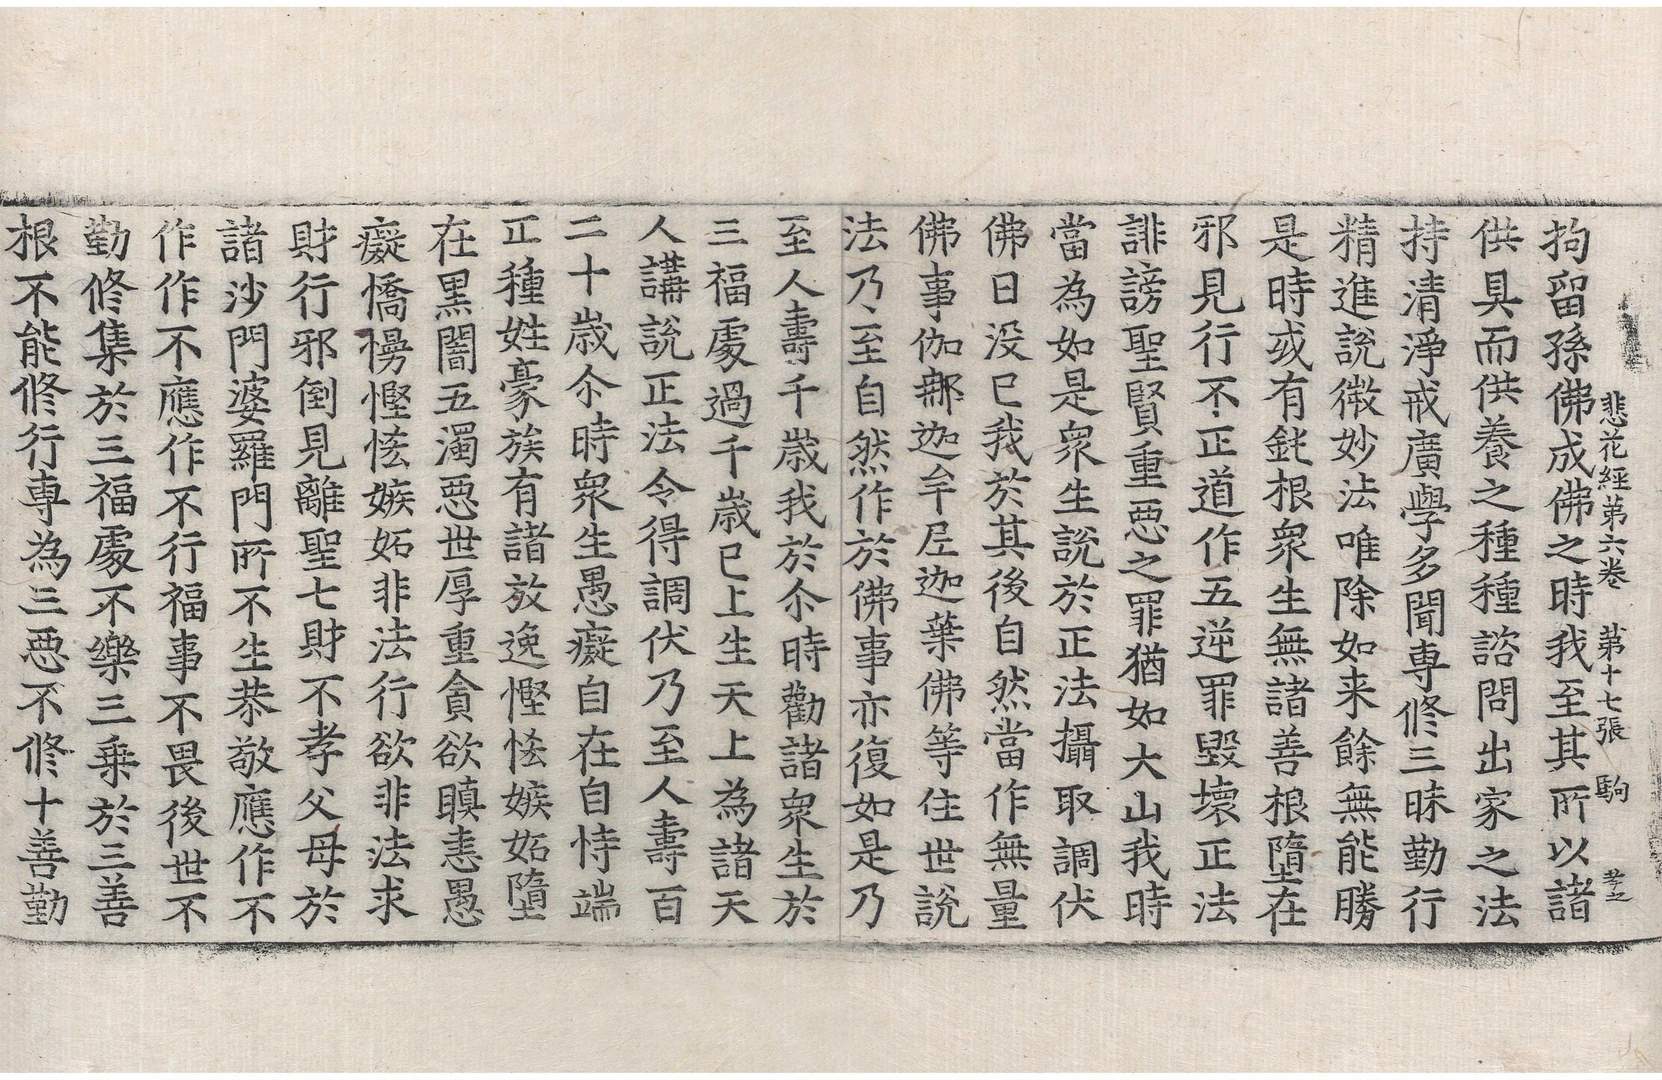 悲花經第六卷　第十七張　駒
拘留孫佛成佛之時我至其所以諸
供具而供養之種種諮問出家之法
持清淨戒廣學多聞專修三昧勤行
精進說微妙法唯除如来餘無能勝
是時或有鈍根衆生無諸善根墮在
邪見行不正道作五逆罪毀壞正法
誹謗聖賢重惡之罪猶如大山我時
當為如是衆生說於正法攝取調伏
佛日没已我於其後自然當作無量
佛事伽郍迦牟尼迦葉佛等住世說
法乃至自然作於佛事亦復如是乃
至人壽千歲我於尒時勸諸衆生於
三福處過千歲已上生天上為諸天
人講說正法令得調伏乃至人壽百
二十歲尒時衆生愚癡自在自恃端
正種姓豪族有諸放逸慳悋嫉妬墮
在黑闇五濁惡世厚重貪欲瞋恚愚
癡憍慢慳悋嫉妬非法行欲非法求
財行邪倒見離聖七財不孝父母於
諸沙門婆羅門所不生恭敬應作不
作作不應作不行福事不畏後世不
勤修集於三福處不樂三乗於三善
根不能修行専為三惡不修十善勤